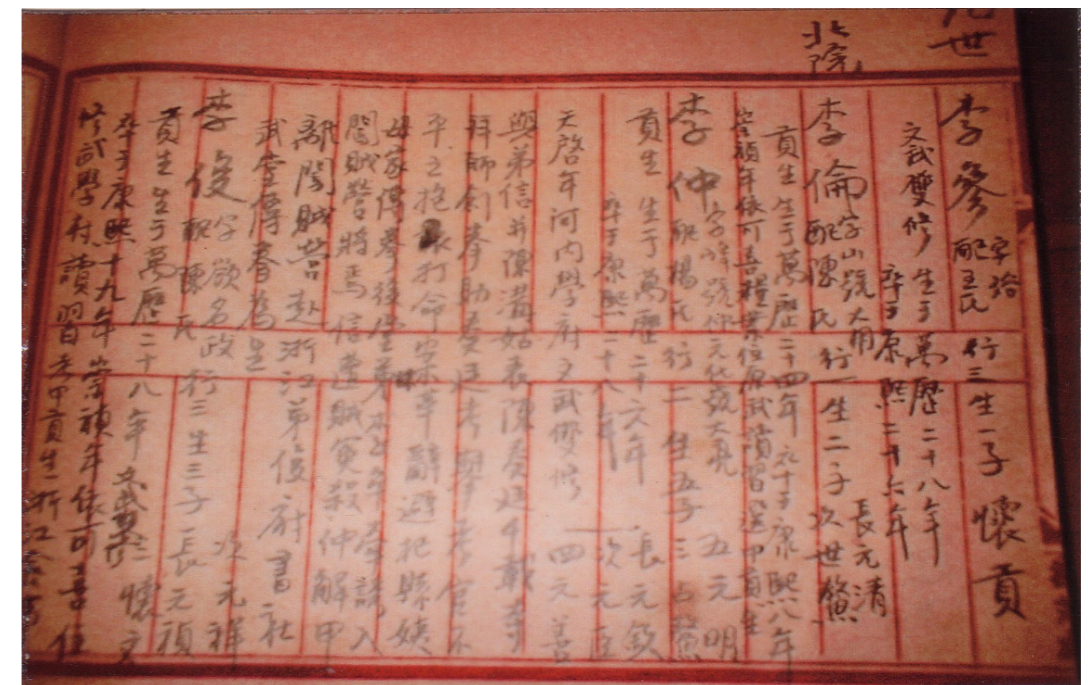 九世
北院
李參 字裕 配王氏 行三 生一子 懷貢
文武雙修 生于萬歷二十八年
卒于康熙二十六年
李倫 字山 號大用 配陳氏 行一 生二子 長元清 次世鰲
貢生 生于萬歷二十四年 卒于康熙八年
崇禎年依 可喜糧業位原武讀習選甲貢生
李仲 字 號 元 配楊氏 行二 生五子 三占鰲 五元明
貢生 生于萬歷二十六年 長元欽
卒于康熙二十八年 次元臣
天啓年河内學府文武雙修 四元善
與弟信并陳溝姑表陳奏廷千載寺
拜師創拳助奏廷考舉考官不
平之抱 打命案辛辭避祀縣姨
母家傳拳後堂弟 年牽說入
闖賊營將焉信遭賊冤殺仲解甲
離闖賊營赴浙江弟俊府書社
武堂傳春為生
李俊 字欲名政 配陳氏 行三 生三子 長元禎 次元祥
貢生 生于萬歷二十八年 文武 三懷文
卒于康熙十九年 崇禎年依可喜任
修武學村讀習 甲貢生 浙江